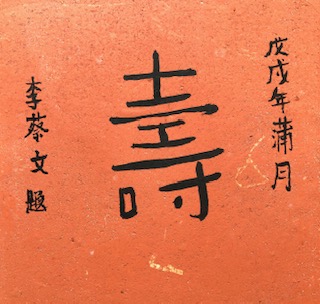 戊戌年蒲月
壽
李蔡文題